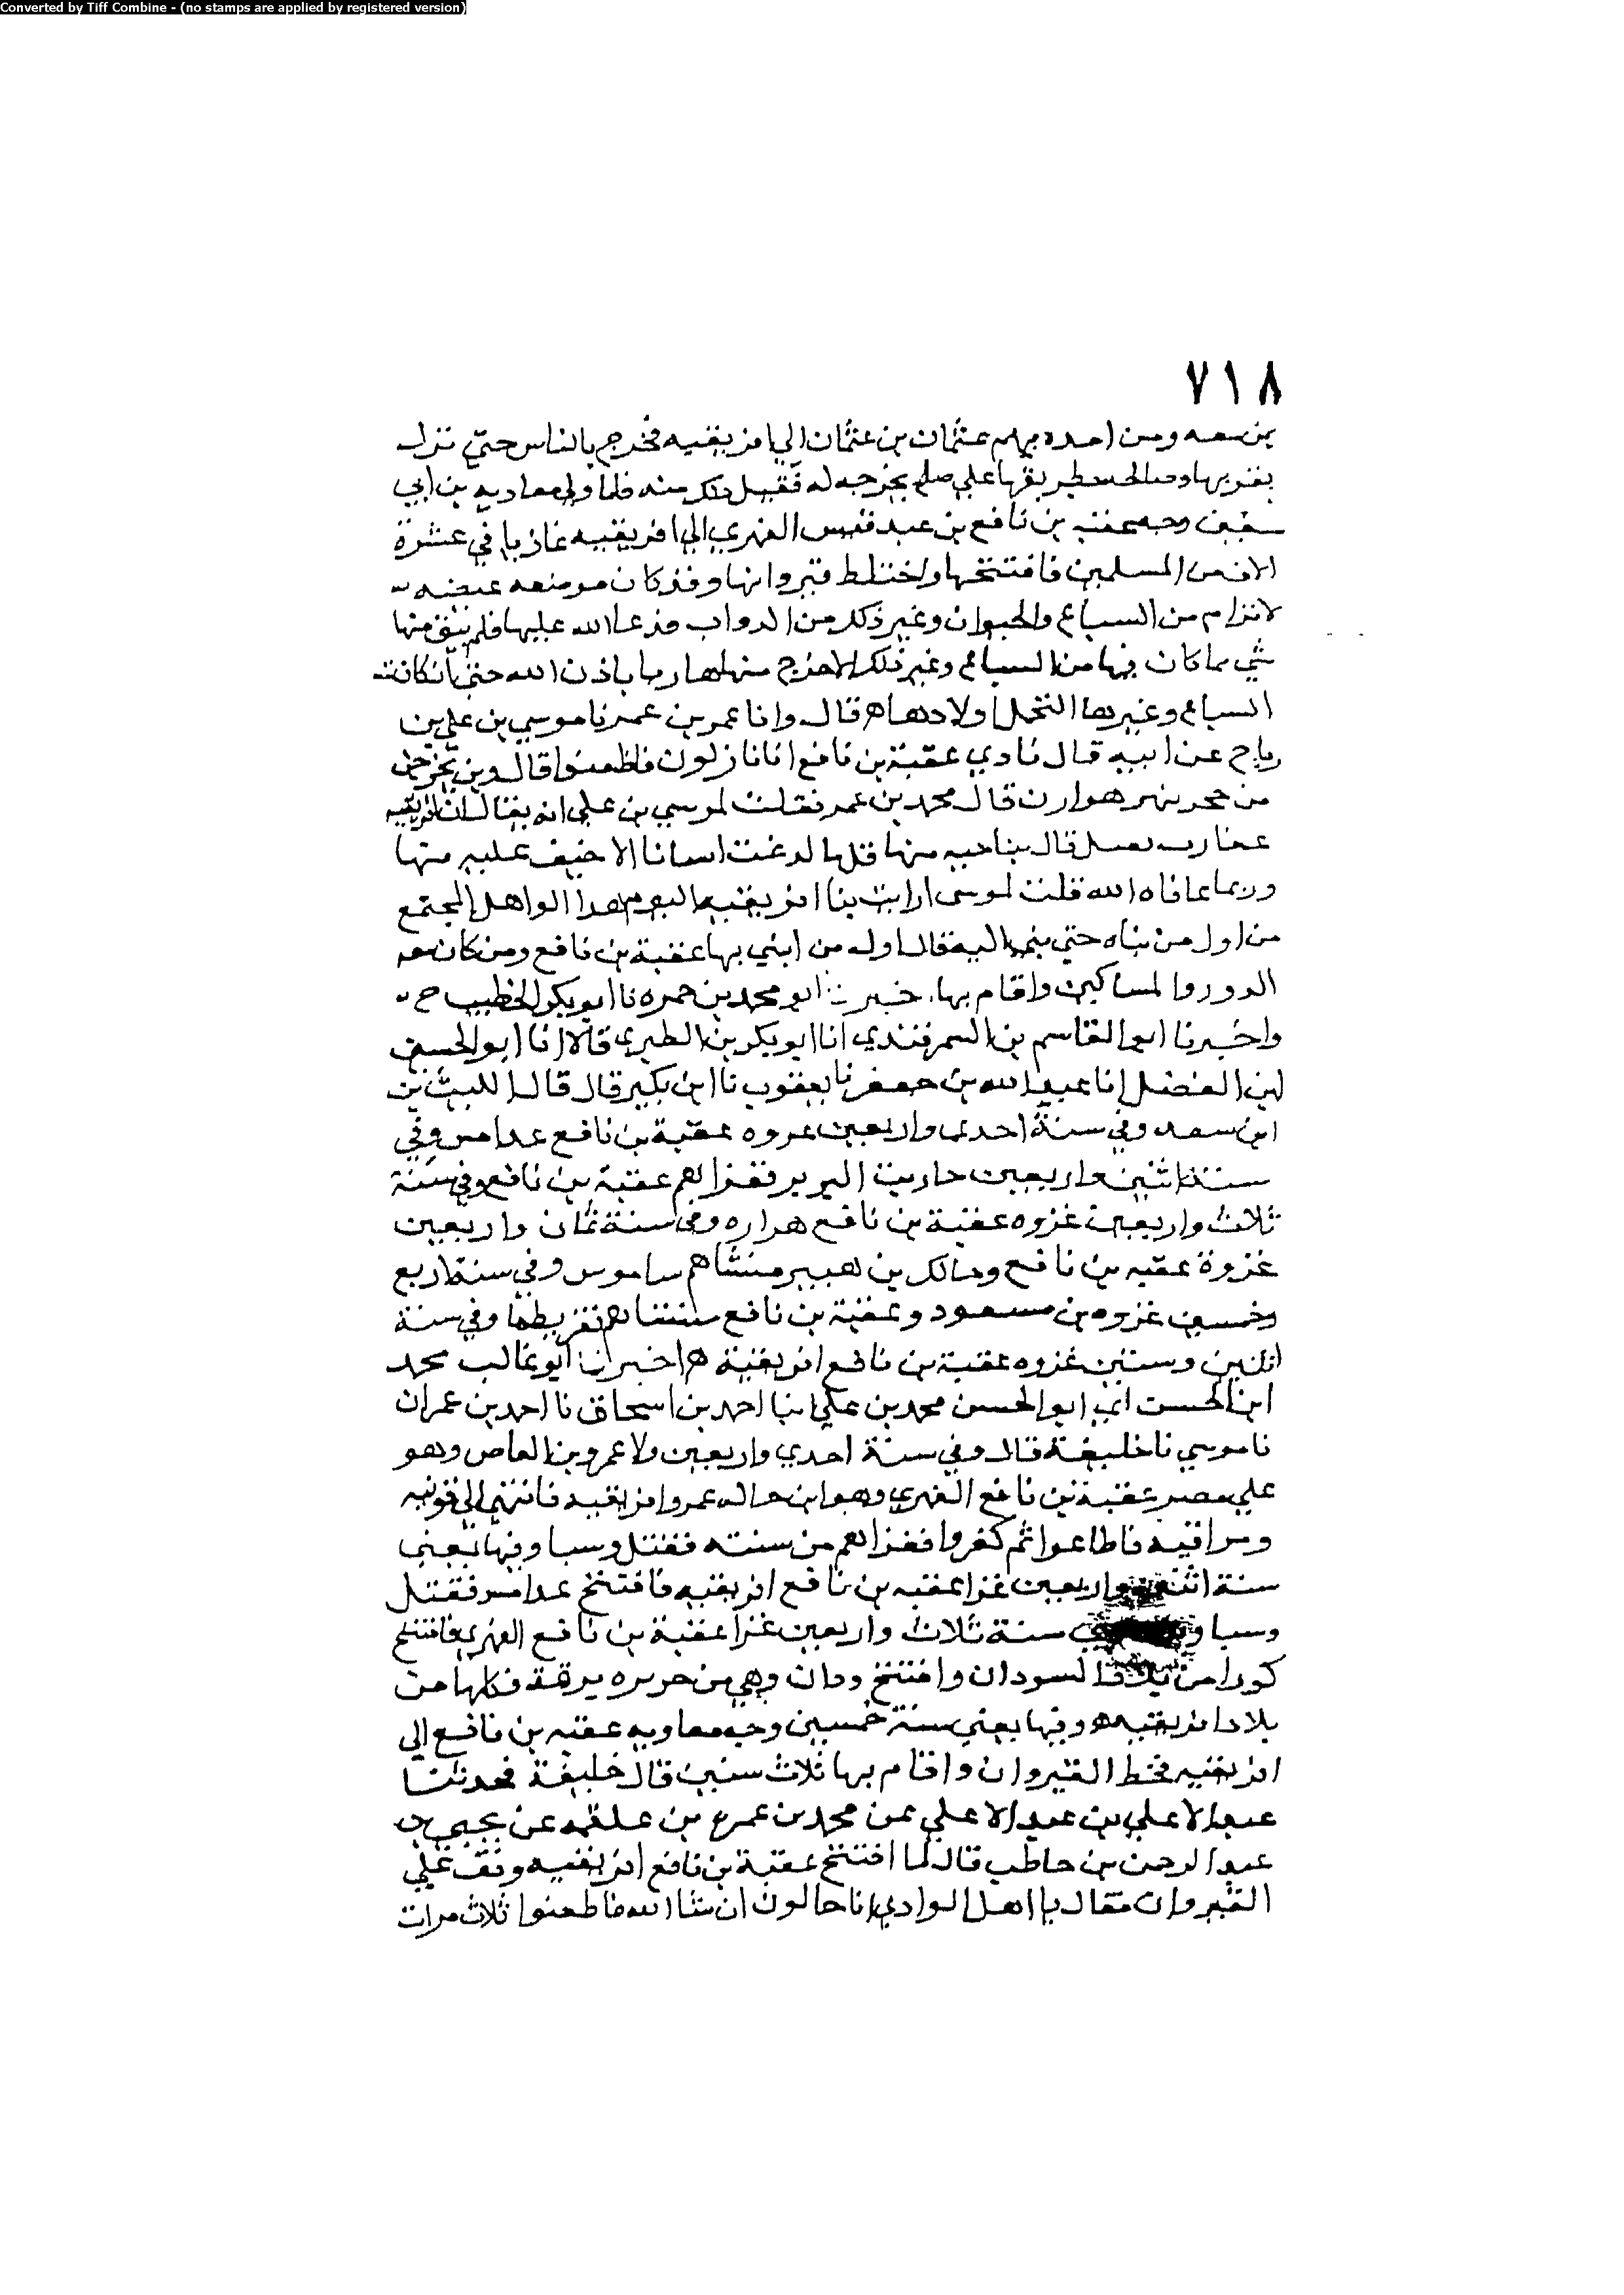 Converted by Tiff Combine - (no stamps are applied by registered version)
٧١٨
بمن معه ومن امده بهم عثمان بن عثمان الي افريقيه فخرج بالناس حتي نزل
بقربها وصالحه بطريقها علي صلح يخرجه له فقبل ذلك منه فلما ولي معاويه بن ابي
سفين وجه عقبه بن نافع بن عبد قيس الفهري الي افريقيه غازيا في عشرة
الاف من المسلمين فافتتحها واختلط قيروانها وقد كان موضعه غيضه
لا ترام من السباع والحيوان وغير ذلك من الدواب فدعا الله عليها فلم يبق منها
شي مما كان فيها من السباع وغير ذلك الا خرج منها هاربا باذن الله حتي ان كانت
السباع وغيرها لتحمل اولادها ه قال وانا محمد بن عمر نا موسي بن علي بن
رباح عن ابيه قال نادي عقبة بن نافع انا نازلون فاظعنوا قال فراين يخرجن
من جحرتهن هوارب قال محمد بن عمر فقلت لموسي بن علي انه يقال ان بافريقيه
عقارب تقتل قال بناحيه منها قلما لدغت انسانا الا خيف عليه منها
وربما عافاه الله قلت لموسي ارايت بنا افريقيه اليوم هذا الواهل المجتمع
من اول من بناه حتي بني اليه فقال اول من ابتني بها عقبة بن نافع ومن كان معه
الدور والمساكين واقام بها، خبرنا ابو محمد بن حمزه نا ابو بكر الخطيب ح
واخبرنا ابو القاسم بن السمرقندي انا ابو بكر بن الطبري قالا انا ابو الحسين
ابن الفضل انا عبد الله بن جعفر نا يعقوب نا ابن بكير قال قال الليث بن
ابن سعد وفي سنة احدى واربعين غزوه عقبة بن نافع غدامس وفي
سنة اثنين واربعين حاربت البربر فغزاهم عقبة بن نافع وفي سنة
ثلاث واربعين غزوه عقبة بن نافع هواره وفي سنة ثمان واربعين
غزوة عقبه بن نافع ومالك بن هبير مشتاهم ساموس وفي سنة اربع
وخمسين غزوه بن مسعود وعقبة بن نافع مشتاهم اقريطها وفي سنة
اثنين وستين غزوه عقبة بن نافع افريقية ه اخبرنا ابو غالب محمد
ابن الحسن انبا ابو الحسن محمد بن علي انبا احمد بن اسحاق نا احمد بن عمران
نا موسي نا خليفة قال وفي سنة احدي واربعين ولا عمرو بن العاص وهو
علي مصر عقبة بن نافع الفهري وهو ابن خاله عمرو افريقيه فانتهي الي قونيه
ومراقيه فاطاعوا ثم كفروا فغزاهم من سنته فقتل وسبا وفيها يعني
سنة اثنين واربعين غزا عقبه بن نافع افريقيه فافتتح غدامس فقتل
وسبا سنة ثلاث واربعين غزا عقبة بن نافع الفهري فافتتح
كورا من بلاد السودان وافتتح ودان وهي من حريره برقة وكلها من
بلاد افريقيه ه وفيها يعني سنة خمسين وجه معاويه عقبه بن نافع الي
افريقيه فخط القيروان واقام بها ثلاث سنين قال خليفة فحدثنا
عبد الاعلي بن عبد الاعلي عن محمد بن عمرو بن علقمه عن يحيي بن
عبد الرحمن بن حاطب قال لما افتتح عقبة بن نافع افريقيه وقف علي
القيروان فقال يا اهل الوادي انا حالون ان شا الله فاظعنوا ثلاث مرات